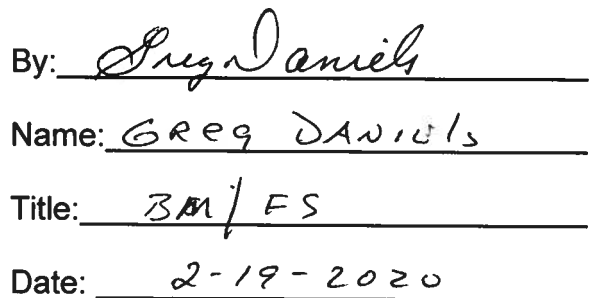 By: Greg Daniels
Name: GReg DANiels
Title: BM/FS
Date: 2-19-2020